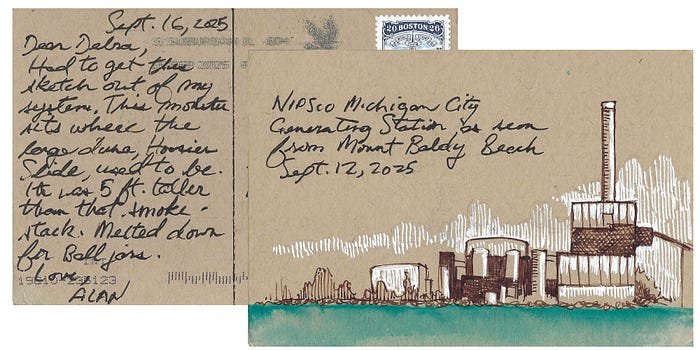 Sept. 16, 2025
Dear Debra,
Had to get this
sketch out of my
system. This monster
sits where the
large dune, Hoosier
Slide, used to be.
It was 5 ft. taller
than that smoke-
stack. Melted down
for Ball jars.
Love,
ALAN
20 BOSTON 26
NIPSCO Michigan City
Generating Station as seen
from Mount Baldy Beach
Sept. 12, 2025